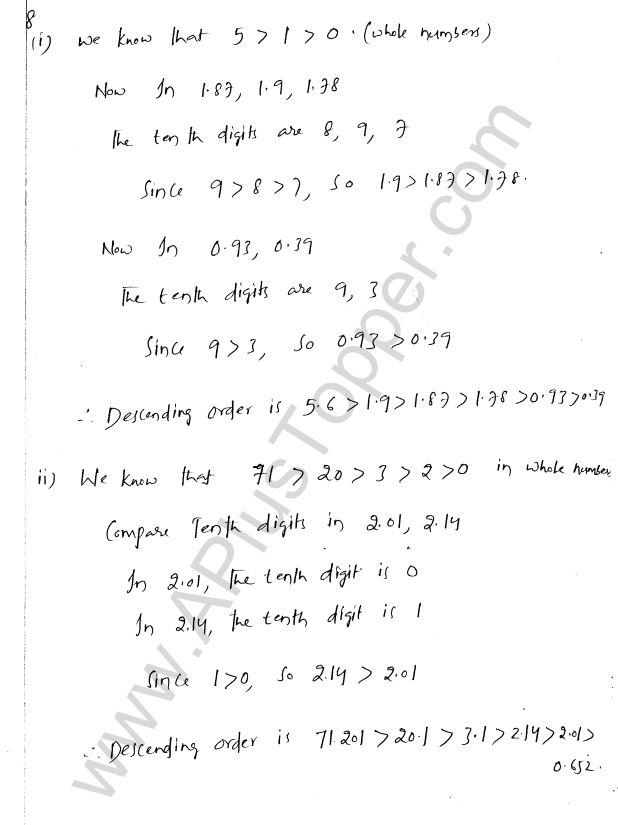 8
(i) We know that 5 > 1 > 0. (whole numbers)
Now In 1.87, 1.9, 1.78
The tenth digits are 8, 9, 7
Since 9 > 8 > 7, So 1.9 > 1.87 > 1.78.
Now In 0.93, 0.39
The tenth digits are 9, 3
Since 9 > 3, So 0.93 > 0.39
∴ Descending order is 5.6 > 1.9 > 1.87 > 1.78 > 0.93 > 0.39
ii) We know that 71 > 20 > 3 > 2 > 0 in whole number
Compare Tenth digits in 2.01, 2.14
In 2.01, The tenth digit is 0
In 2.14, the tenth digit is 1
Since 1 > 0, So 2.14 > 2.01
∴ Descending order is 71.201 > 20.1 > 3.1 > 2.14 > 2.01 >
0.652.
www.APlusTopper.com